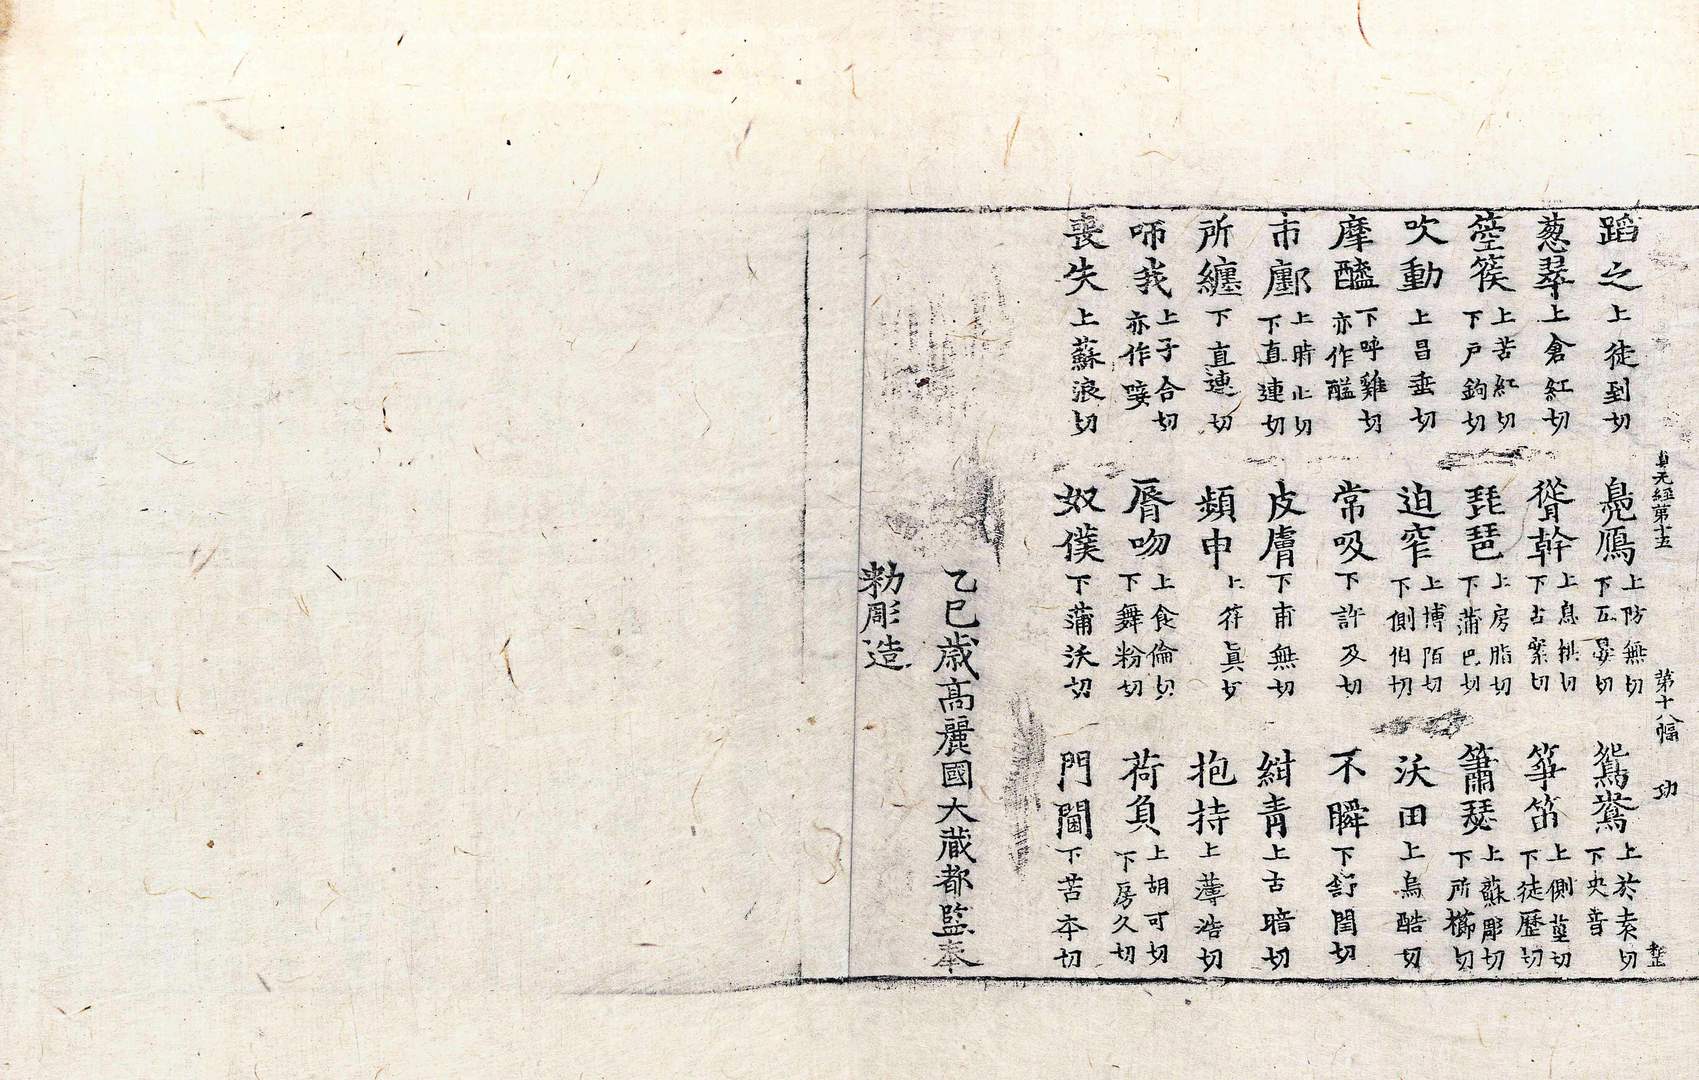 貞元經第十五 第十八幅 功
蹈之上徒到切 鳧鴈上防無切下五晏切 鴛鴦上於袁切下央音
葱翠上倉紅切 聳幹上息拱切下古案切 筝笛上側莖切下徒歷切
箜篌上苦紅切下戶鉤切 琵琶上房脂切下蒲巴切 簫瑟上蘇彫切下所櫛切
吹動上昌垂切 迫窄上博陌切下側伯切 沃田上烏酷切
摩醯下呼雞切亦作醘 常吸下許及切 不瞬下舒閏切
市廛上時止切下直連切 皮膚下甫無切 紺青上古暗切
所纏下直連切 頻申上符真切 抱持上薄浩切
咂我上子合切亦作唼 脣吻上食倫切下舞粉切 荷負上胡可切下房久切
喪失上蘇浪切 奴僕下蒲沃切 門閫下苦本切
乙巳歲高麗國大藏都監奉
勑彫造